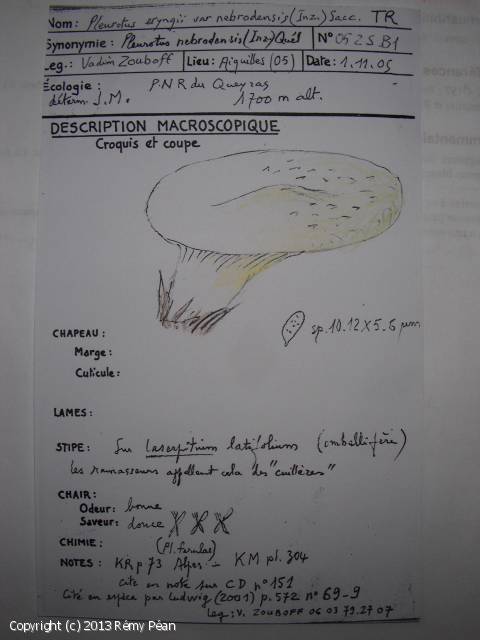 Nom: Pleurotus eryngii var nebrodensis (Inz.) Sacc. TR
Synonymie: Pleurotus nebrodensis (Inz) Quél N° 0525B1
Leg.: Vadim Zouboff Lieu: Aiguilles (05) Date: 1.11.05
Écologie: P.N.R du Queyras
déterm J.M. 1700 m alt.
DESCRIPTION MACROSCOPIQUE
Croquis et coupe
sp. 10-12 x 5-6 µm
CHAPEAU:
Marge:
Cuticule:
LAMES:
STIPE: Sur Laserpitium latifolium (ombellifère)
les ramasseurs appellent cela des "cuillères"
CHAIR:
Odeur: bonne
Saveur: douce XXX
CHIMIE: (Pl. ferulae)
NOTES: KR p 73 Alpes - KM pl. 304
Cité en note sur CD n° 151
Cité en espèce par Ludwig (2001) p. 572 n° 69-9
Leg: V. ZOUBOFF 06 03 79 27 07
Copyright (c) 2013 Rémy Péan